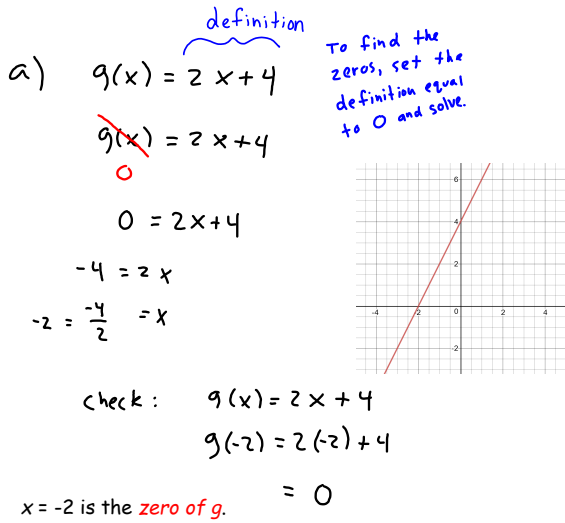 definition
a) g(x) = 2x+4
To find the
zeros, set the
definition equal
to 0 and solve.
g(x) = 2x+4
0
0 = 2x+4
-4 = 2x
-2 = -4/2 = x
6
4
2
-4 -2 0 2 4
-2
check: g(x) = 2x + 4
g(-2) = 2(-2)+4
= 0
x = -2 is the zero of g.